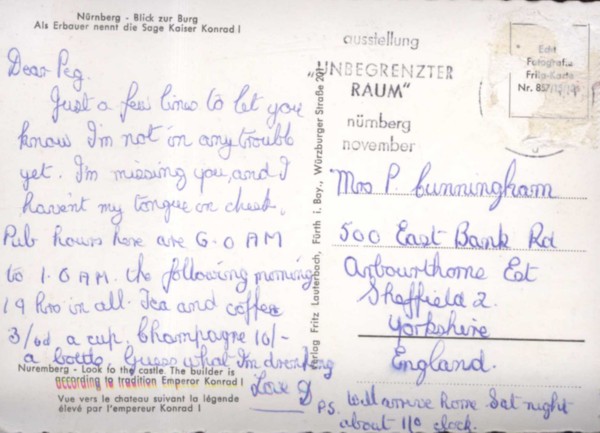 Nürnberg - Blick zur Burg
Als Erbauer nennt die Sage Kaiser Konrad I
Dear Peg.
Just a few lines to let you
know I'm not in any trouble
yet. I'm missing you, and I
havent my tongue in cheek.
Pub hours here are 6.0 AM
to 1.0 AM. the following morning
19 hrs in all. Tea and coffee
3/6d a cup, Champagne 10/-
a bottle, Guess what I'm drinking
Love D
Nuremberg - Look to the castle. The builder is
according to tradition Emperor Konrad I
Vue vers le chateau suivant la légende
élevé par l'empereur Konrad I
Verlag Fritz Lauterbach, Fürth i. Bay., Würzburger Straße
ausstellung
"UNBEGRENZTER
RAUM"
nürnberg
november
Echt
Fotografie
Frila-Karte
Nr. 857/
Mrs P. Cunningham
500 East Bank Rd
Arbourthorne Est
Sheffield 2.
Yorkshire
England.
PS. Will arrive home Sat night
about 11° clock.